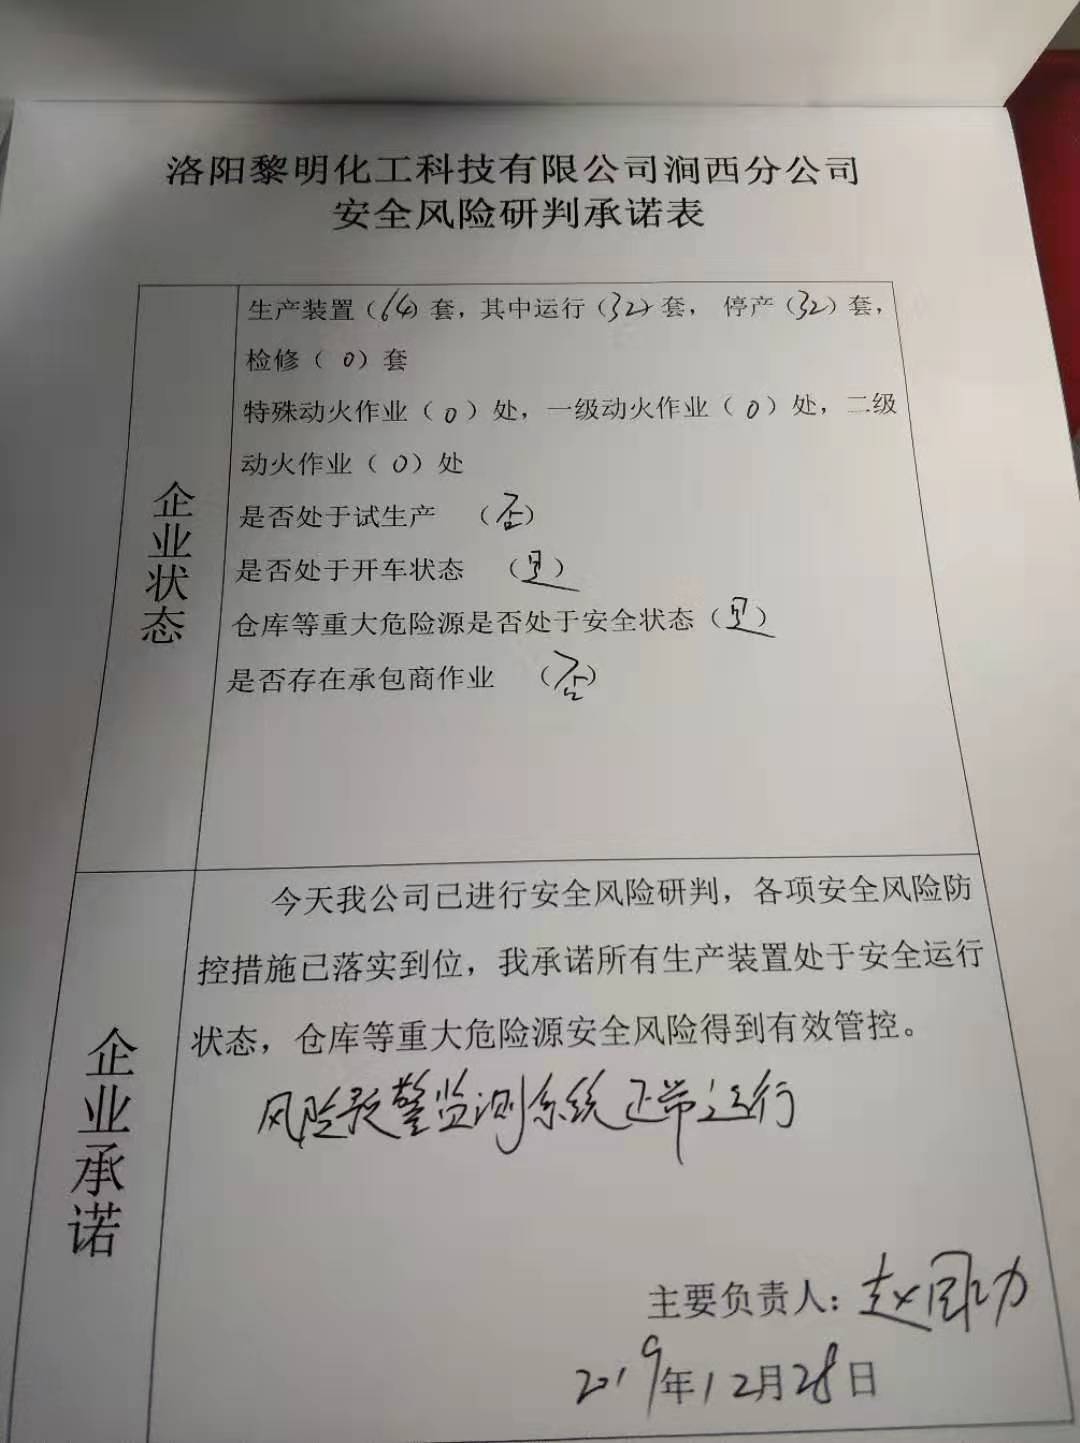 洛阳黎明化工科技有限公司涧西分公司
安全风险研判承诺表
企业状态
生产装置（64）套，其中运行（32）套， 停产（32）套，
检修（ 0）套
特殊动火作业（ 0 ）处，一级动火作业（ 0 ）处，二级
动火作业（ 0）处
是否处于试生产 （否）
是否处于开车状态 （是）
仓库等重大危险源是否处于安全状态（是）
是否存在承包商作业 （否）
企业承诺
今天我公司已进行安全风险研判，各项安全风险防
控措施已落实到位，我承诺所有生产装置处于安全运行
状态，仓库等重大危险源安全风险得到有效管控。
风险预警监测系统正常运行
主要负责人：赵
2019年12月28日